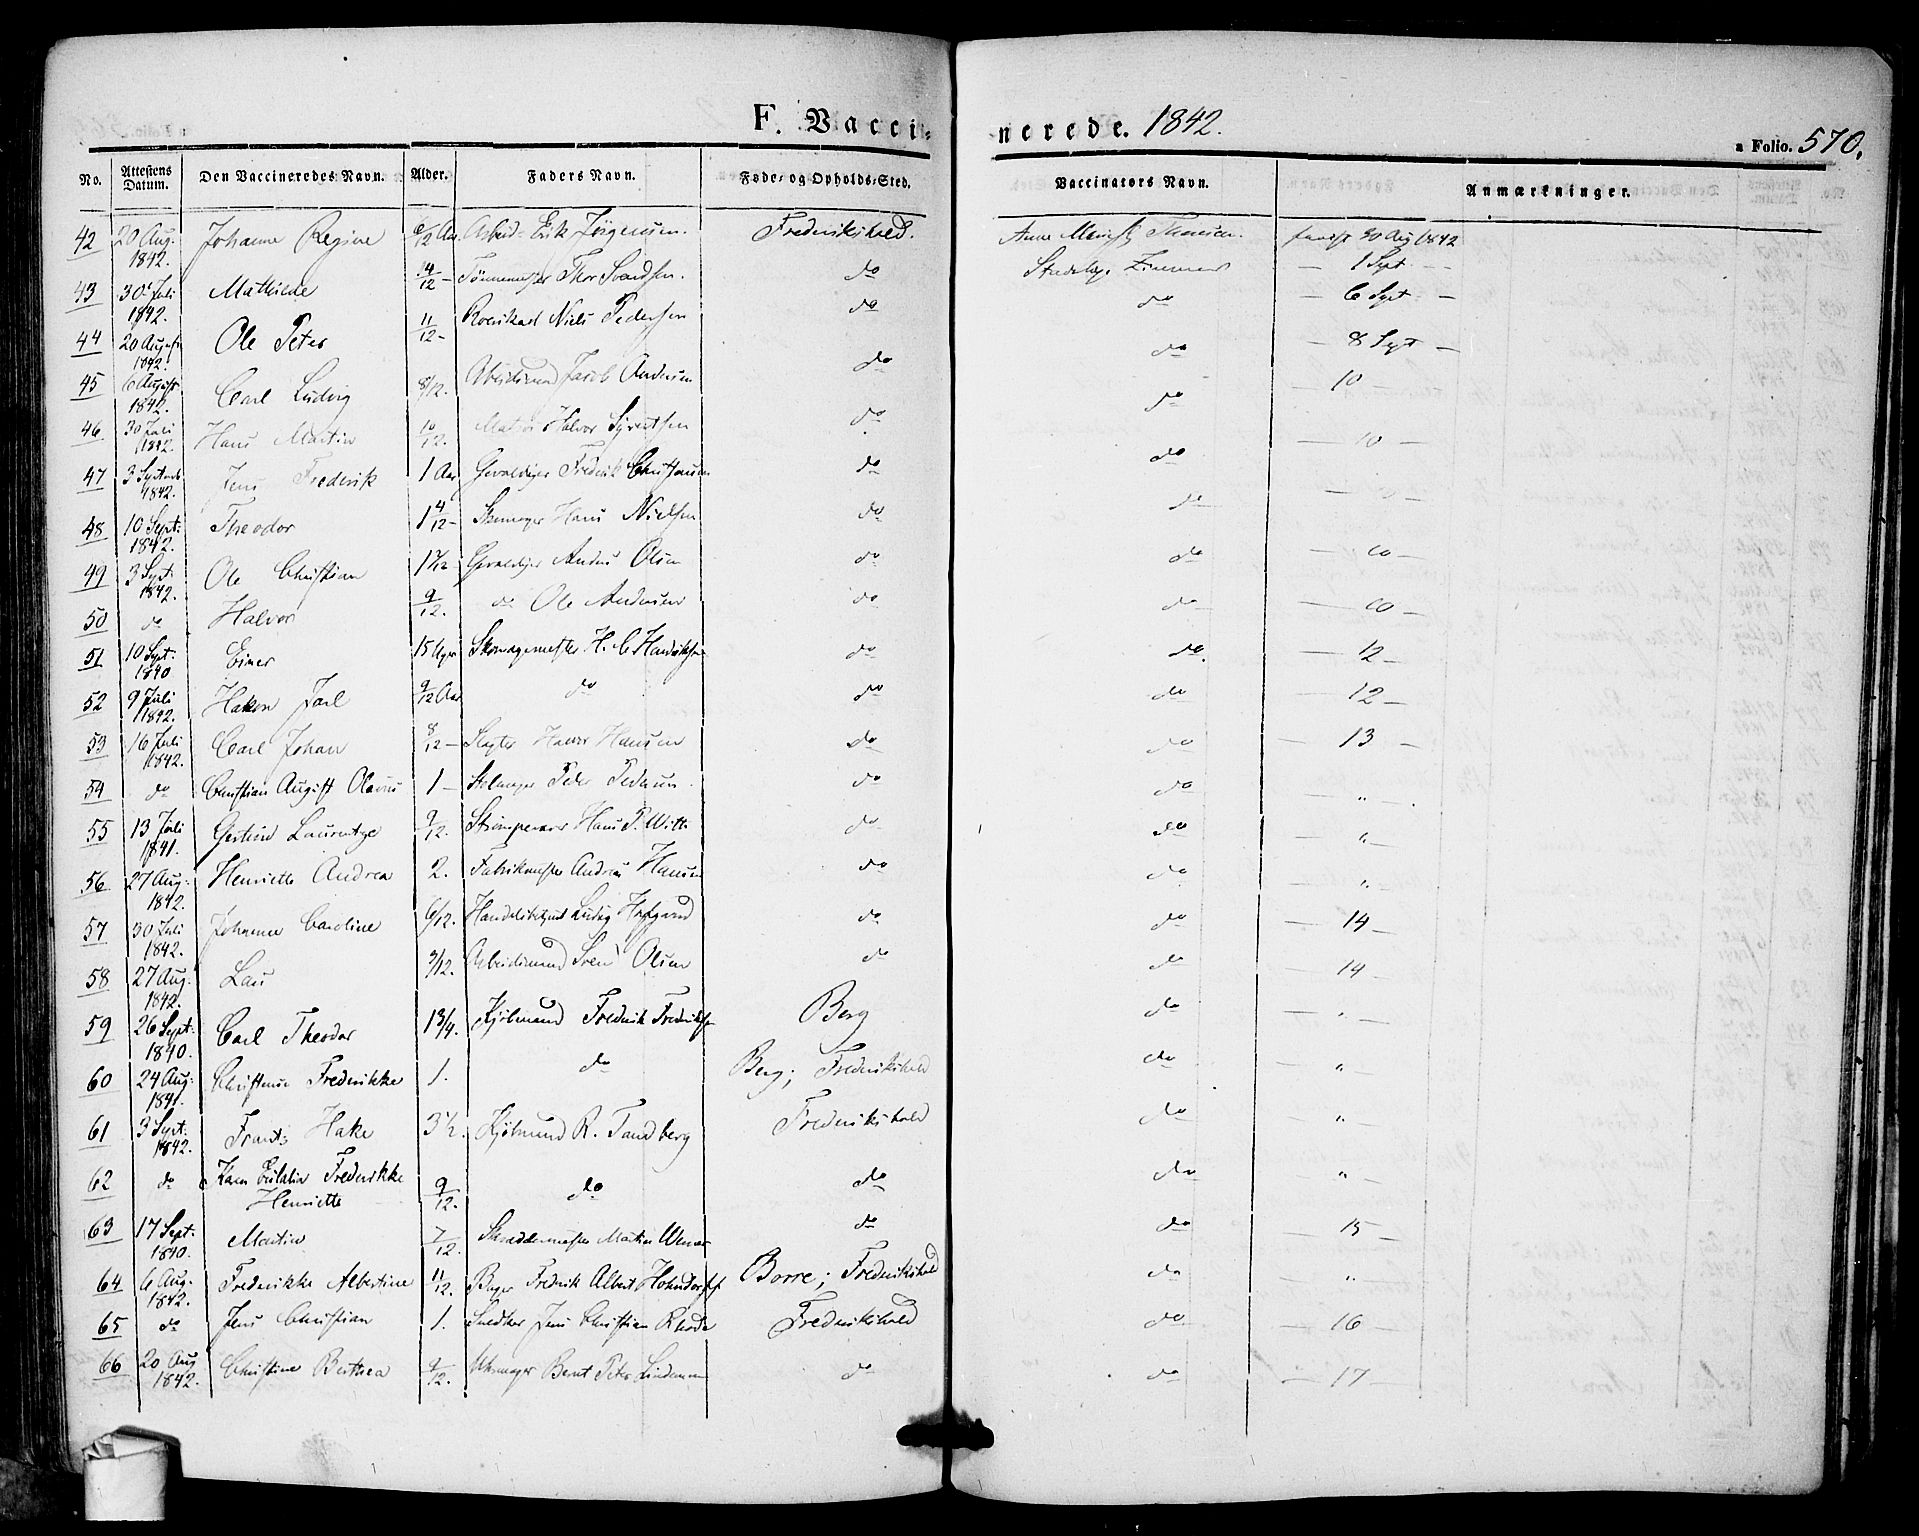 F. Vacci-
nerede. 1842.
a Folio. 570.
No. Attestens Datum. Den Vaccineredes Navn. Alder. Faders Navn. Føde- og Opholds-Sted. Vaccinators Navn. Anmærkninger.
42 20 Aug: 1842. Johanne Regine 6/12 Aar Erik Jørgensen Frederikshald. 20 Aug 1842
43 30 Juli 1842. Mathilde 4/12 - Thor Svendsen. do — 1 Sept. —
44 20 August 1842. Ole Peter 11/12 - Niels Pedersen do do — 6 Sept. —
45 6 August 1842. Carl Ludvig 8/12. Arbeidsmand Jacob Andersen do do — 8 Sept —
46. 30 Juli 1842. Hans Martin 10/12. Matros Halvor Syvertsen do do — 10 —
47 3 Septemb 1842. Jens Frederik 1 Aar Gevaldiger Frederik Christiansen do do — 10 —
48 10 Sept: 1842. Theodor 1 4/12 - Skomager Hans Nielsen do do
49 3 Sept: 1842. Ole Christian Gevaldiger Anders Olsen do do — 10 —
50 do Halvor 9/12. do Ole Andersen do do — 10 —
51 10 Sept: 1840 Einer 15 Uger Skomagermester H. C. Hendriksen do do — 12 —
52 9 Juli 1842. Hakon Jarl 9/12 Aar do do do — 12 —
53 16 Juli 1842. Carl Johan 8/12 - Slagter Halvor Hansen do do — 13 —
54 do Christian August Olavus 1 - Peder Pedersen do do — " —
55 13 Juli 1841. Laurentze 9/12. Hans P. Witt do do — " —
56 27 Aug: 1842. Henriette Andrea 2. Fabrikmester Andreas Hansen do do — " —
57 30 Juli 1842. Johanne Caroline 6/12. do do — 14 —
58 27 Aug: 1842. Lars 9/12. Arbeidsmand Sven Olsen do do — 14 —
59 26 Sept: 1840. Carl Theodor 1 3/4. Kjøbmand Frederik Fredriksen Berg do — " —
60 24 Aug: 1841. Christense Frederikke 1. do Berg; Frederikshald do — " —
61 3 Sept: 1842. Frants Hake 3 1/2. Kjøbmand R. Tandberg Frederikshald do — " —
62 do Karen Eulalia Frederikke Henriette 9/12. do do do — " —
63 17 Sept: 1840. Martin 7/12. Skreddermester Martin do do — 15 —
64 6 Aug: 1842. Frederikke Albertine 11/12. Bager Fredrik Albert Hohndorff Borre; Frederikshald do — " —
65 do Jens Christian 1. Snedker Jens Christian Rhode Frederikshald do — 16 —
66 20 Aug 1842. Christine Berthea 9/12. Uhrmager Bernt Peter Lindeman do do — 17 —